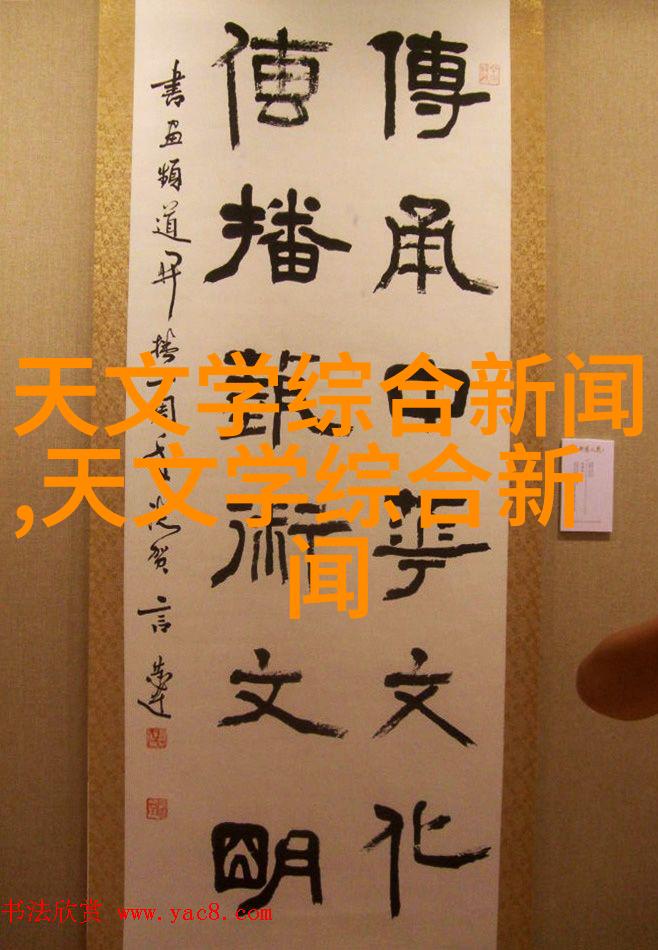 傳承中華文化
傳播藝術文明
書画頻道開播
賀
言恭達
天文学综合新闻
,天文学综合新
闻
书法欣赏 www.yac8.com